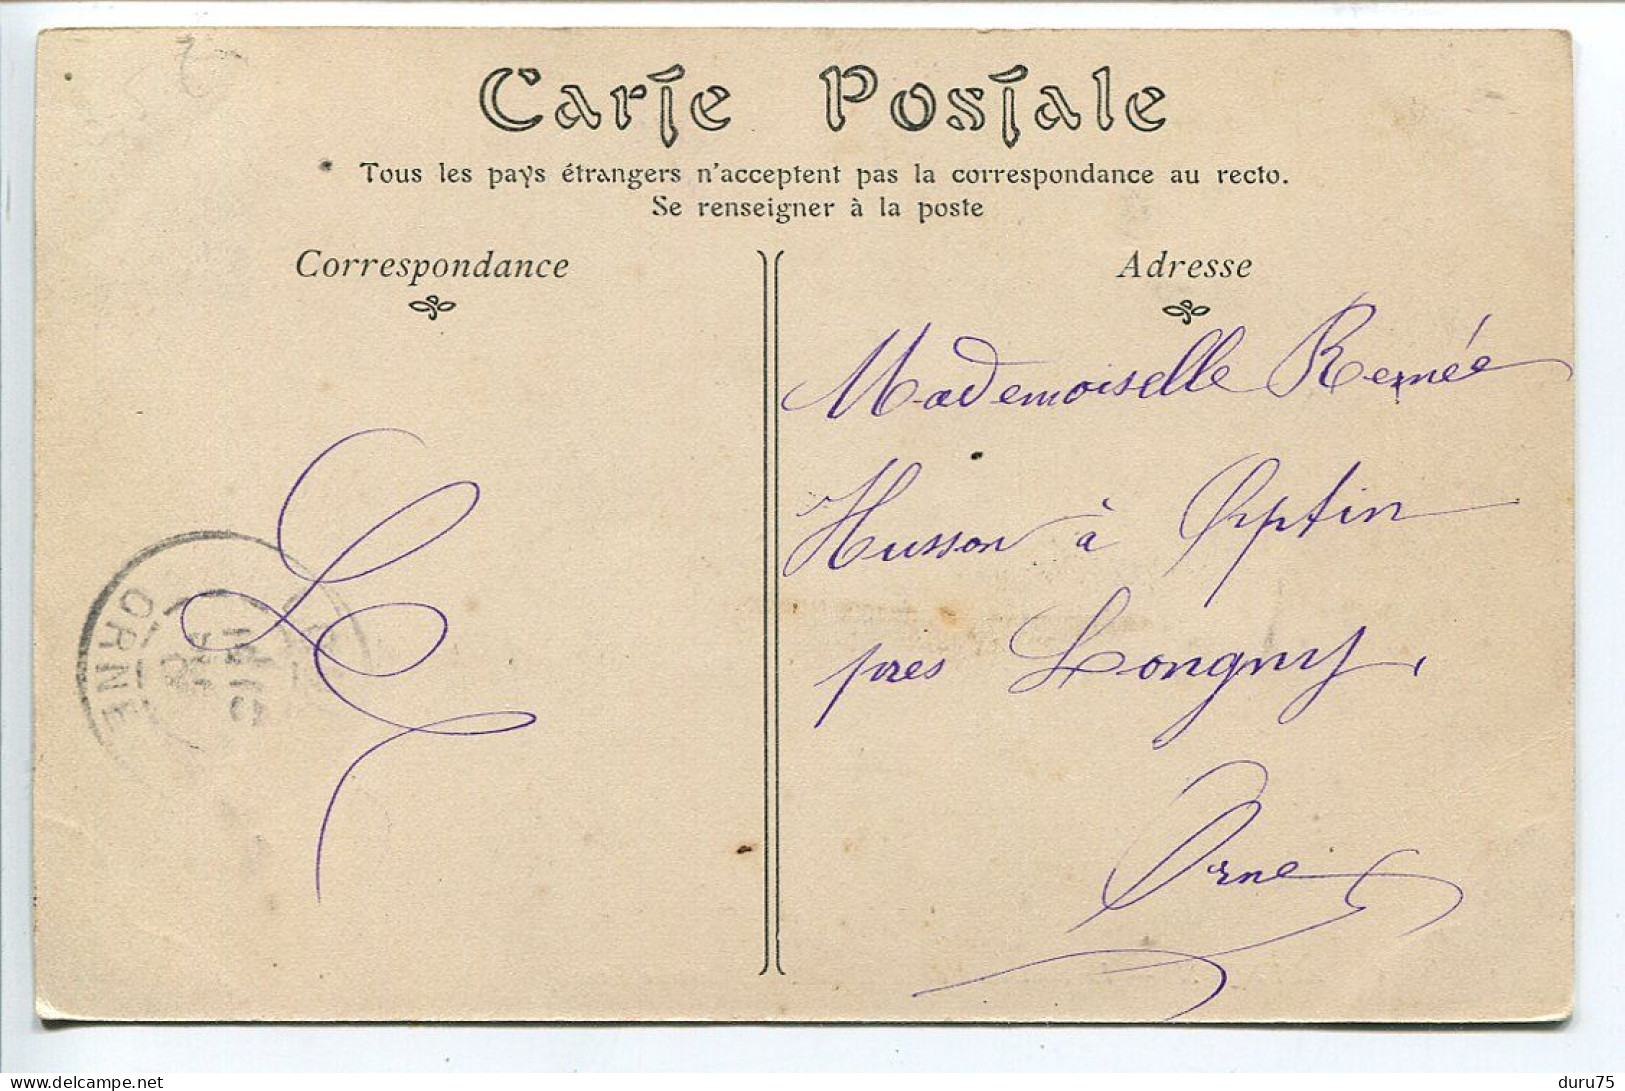 Carte Postale
Tous les pays étrangers n'acceptent pas la correspondance au recto.
Se renseigner à la poste
Correspondance
Adresse
Mademoiselle Renée
Husson à
près Longny,
Orne
ORNE
duru75